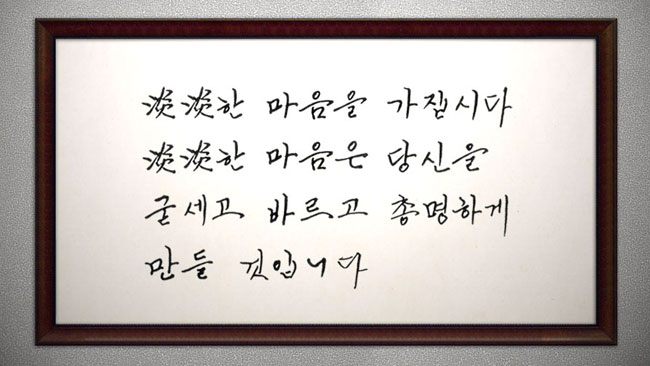 淡淡한 마음을 가집시다
淡淡한 마음은 당신을
굳세고 바르고 총명하게
만들 것입니다